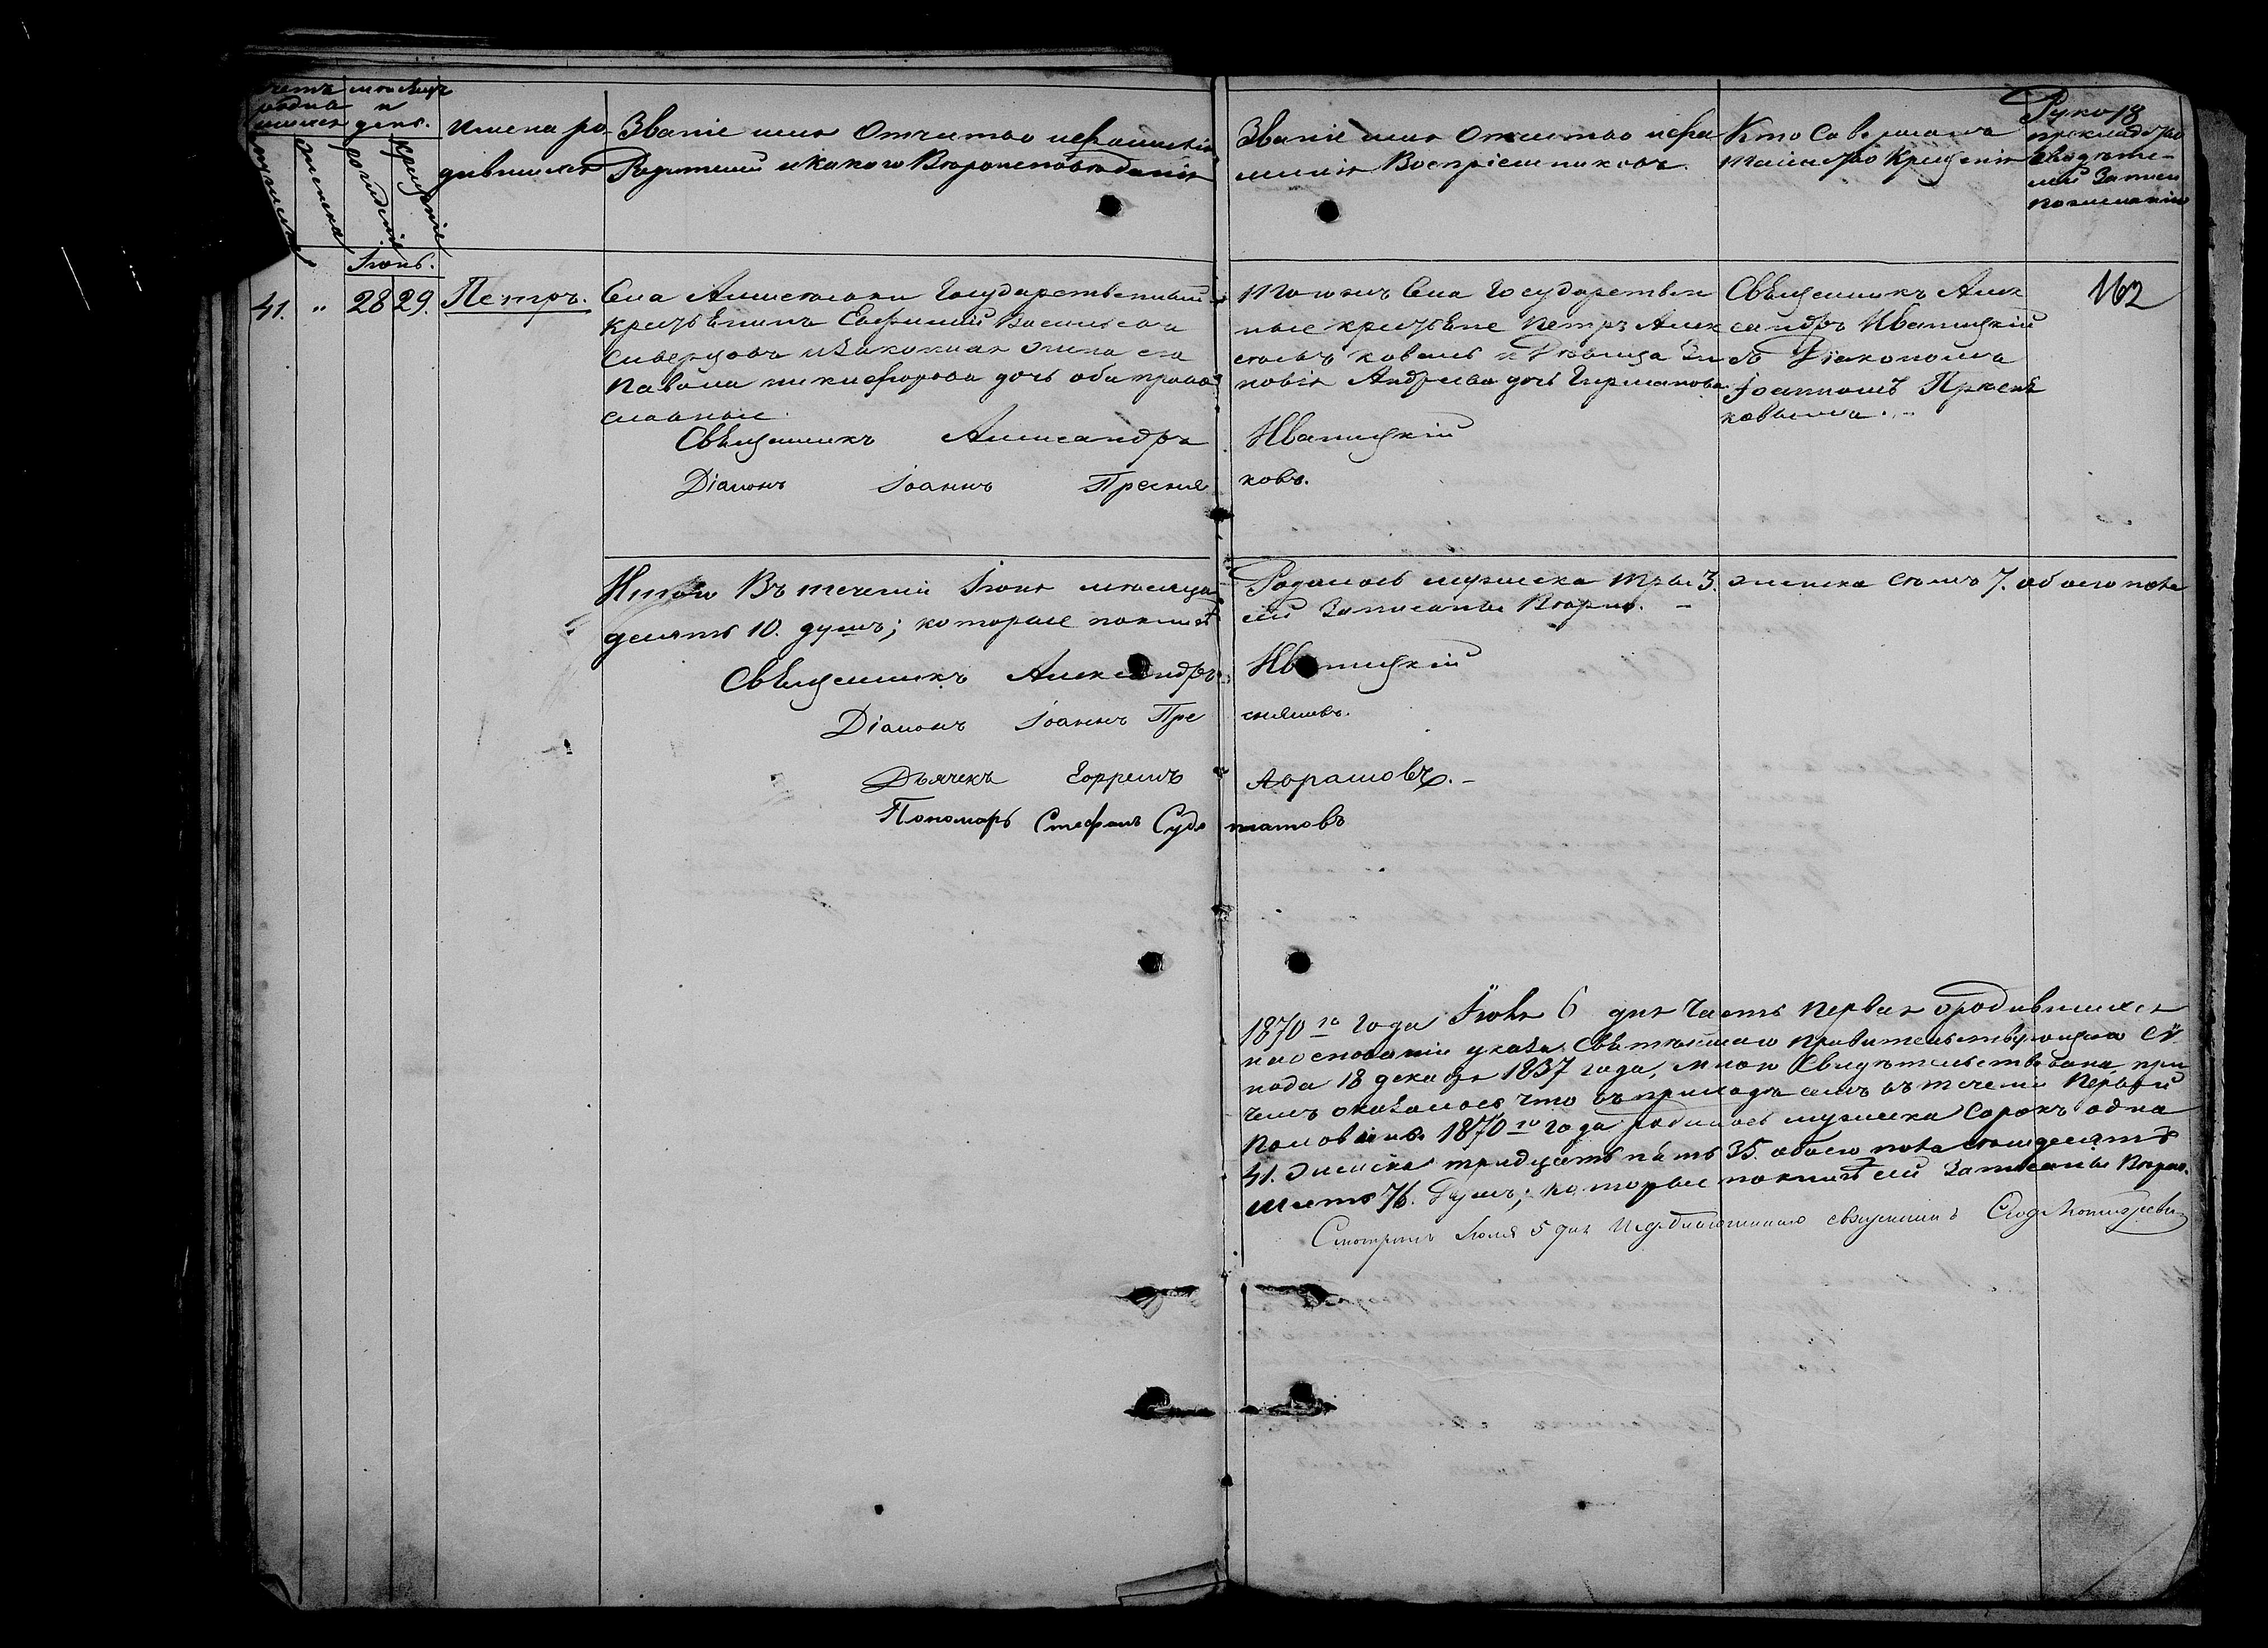 Счетъ родившихся
мѣсяцъ и день.
мужеска
женска
рожденіе
крещеніе
Имена ро-
дившихся
Званіе имя Отчество и фамилія
Родителей и какого Вѣроисповѣданія
Званіе имя Отчество и фа
милія Воспріемниковъ.
Кто Совершалъ
таинство Крещенія
Руко
прикладство
свидѣте-
лей Записи
по желанію
18
Іюнь.
41.
"
28
29.
Петръ.
Села Государственный
крестьянинъ Евфимій Васильевъ
и законная жена его
Павла Никифорова дочь оба право
славные
тогожъ Села Государствен
ные крестьяне Петръ Алек
и дѣвица Зи
новія Андреева дочь
Священникъ Алек
сандръ Иваницкій
съ Діакономъ
Іоанномъ Пресня
ковымъ.
162
Священникъ Александръ Иваницкій
Діаконъ Іоаннъ Пресня ковъ.
Итого Въ теченіи Іюня мѣсяца Родилось мужеска три 3. женска семь 7. обоего пола
десять 10. душъ; которые по книгѣ сей Записаны Вѣрно. –
Священникъ Александръ Иваницкій
Діаконъ Іоаннъ Пре сняковъ.
Дьячекъ Ефремъ Абрамовъ. –
Пономарь Стефанъ
1870го года 6 дня Часть первая о родившихся
на основаніи указа Святѣйшаго Правительствующаго Сѵ
нода 18 декабря 1837 года, мною Свидѣтельствована, при
чемъ оказалось что въ приходѣ семъ въ теченіи первой
половины 1870го года родилось мужеска Сорокъ одна
41. женска тридцать пять 35. обоего пола семдесятъ
шесть 76. Душъ; которые по книгѣ сей Записаны Вѣрно.
Смотрилъ Іюля 5 дня Благочинный священникъ